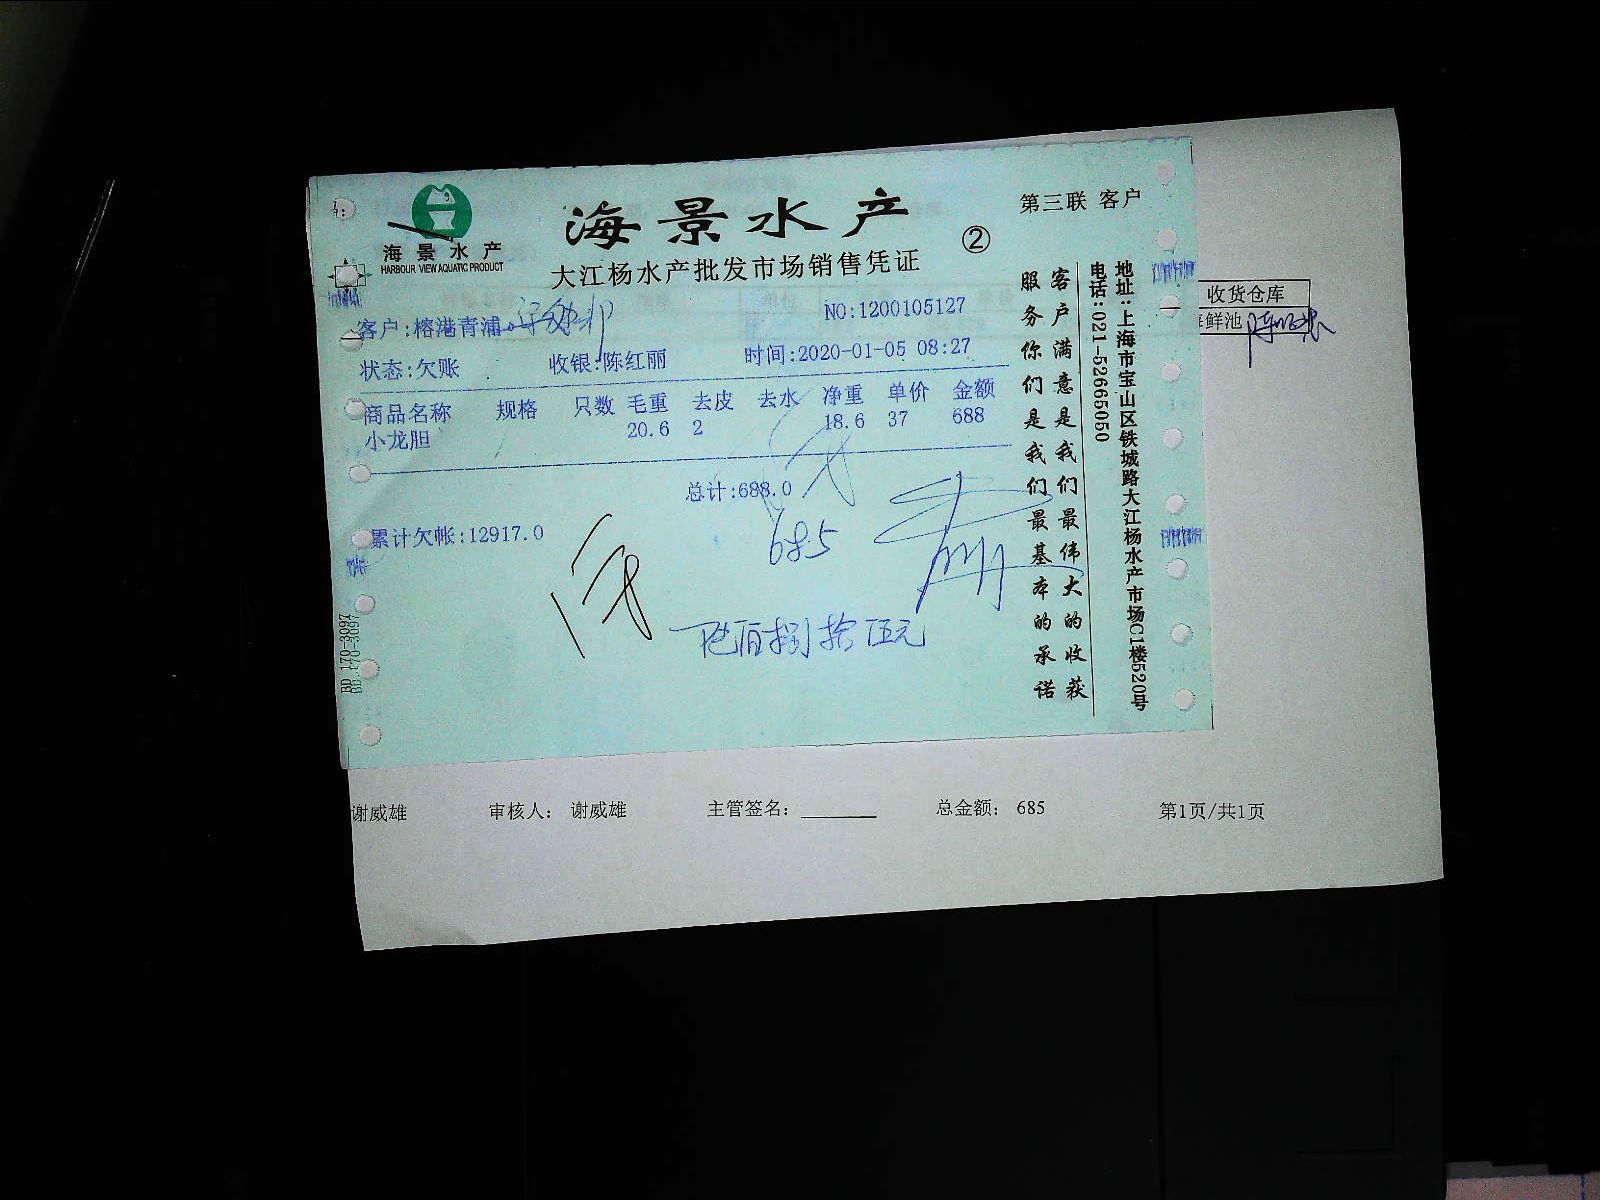 海景水产
HARBOUR VIEW AQUATIC PRODUCT
海景水产
②
第三联 客户
大江杨水产批发市场销售凭证
客户:榕港青浦
NO:1200105127
状态:欠账 收银:陈红丽 时间:2020-01-05 08:27
商品名称 规格 只数 毛重 去皮 去水 净重 单价 金额
小龙胆 20.6 2 18.6 37 688
总计:688.0
累计欠帐:12917.0
685
陆佰捌拾伍元
客户满意是我们最伟大的收获
服务你们是我们最基本的承诺
地址:上海市宝山区铁城路大江杨水产市场C1楼520号
电话:021-52665050
BD 170-3097
收货仓库
鲜池
谢威雄 审核人: 谢威雄 主管签名: 总金额: 685 第1页/共1页